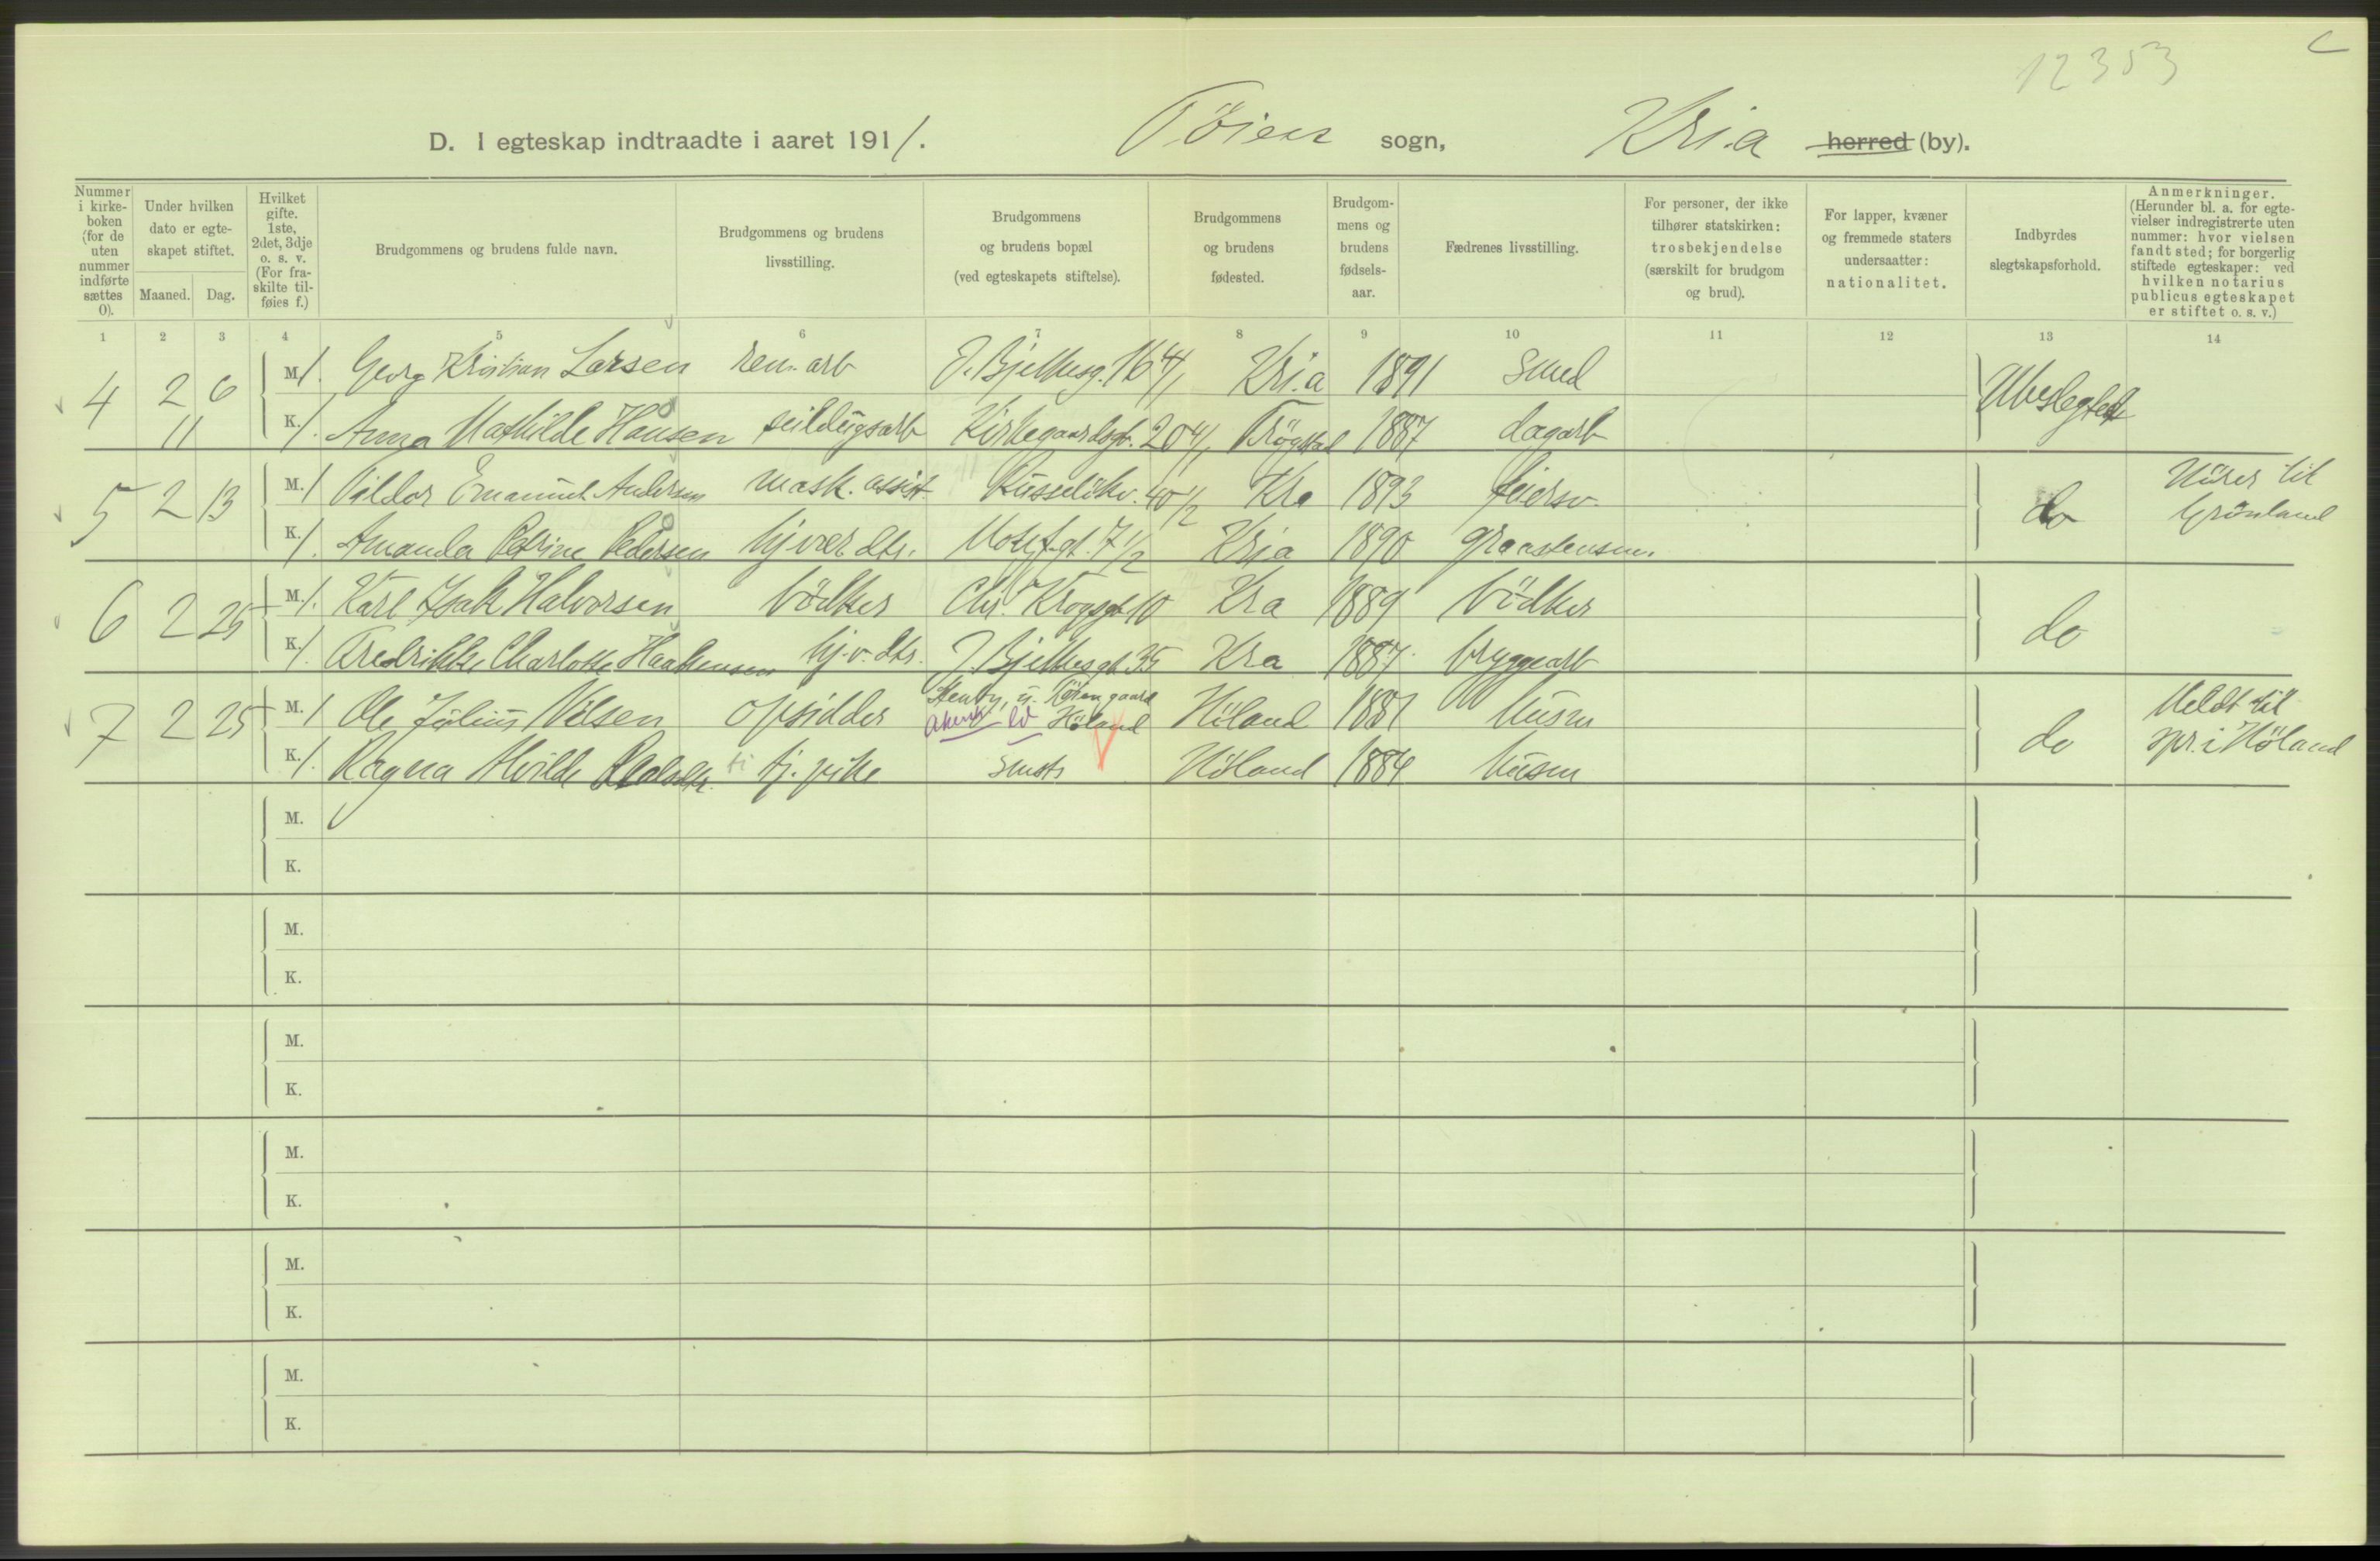 12353
D. I egteskap indtraadte i aaret 1911. Töien sogn, Kria herred (by).
Nummer i kirkeboken (for de uten nummer indførte sættes 0).
Under hvilken dato er egteskapet stiftet.
Maaned. Dag.
Hvilket gifte. 1ste, 2det, 3dje o. s. v. (For fraskilte tilføies f.)
Brudgommens og brudens fulde navn.
Brudgommens og brudens livsstilling.
Brudgommens og brudens bopæl (ved egteskapets stiftelse).
Brudgommens og brudens fødested.
Brudgommens og brudens fødselsaar.
Fædrenes livsstilling.
For personer, der ikke tilhører statskirken: trosbekjendelse (særskilt for brudgom og brud).
For lapper, kvæner og fremmede staters undersaatter: nationalitet.
Indbyrdes slegtskapsforhold.
Anmerkninger. (Herunder bl. a. for egtevielser indregistrerte uten nummer: hvor vielsen fandt sted; for borgerlig stiftede egteskaper: ved hvilken notarius publicus egteskapet er stiftet o. s. v.)
1 2 3 4 5 6 7 8 9 10 11 12 13 14
4 2 6 M. 1. Georg Kristian Larsen ren. arb J. Bjelkesg. 16 4/1 Kria 1891 Smed Ubeslegtede
11 K. 1. Anna Mathilde Hansen seildugsarb Kirkegaardsgt. 20 4/1 Trögstad 1887 dagarb
5 2 13 M. 1 Vildor Emanuel Andersen mask. assist. 40 1/2 Kra 1893 feiersv. do Flürer til Grönland
K. 1. Amanda Petrine Pedersen hjvær. dtr. Motzf.gt. 7 1/2 Kria 1890 graastensm.
6 2 25 M. 1. Karl Isak Halvorsen bödker Chr. Krogsgt 10 Kra 1889 bödker do
K. 1. Fredrikke Charlotte Haakensen hj. v. dtr. J. Bjelkesgt 35 Kra 1887 bryggearb
7 2 25 M. 1 Ole Julius Nilsen opsidder Höland Höland 1881 husm do Meldt til spr. i Höland
K. 1. Ragna Alvilde tj. pike smsts Höland 1884 husm
M.
K.
M.
K.
M.
K.
M.
K.
M.
K.
M.
K.